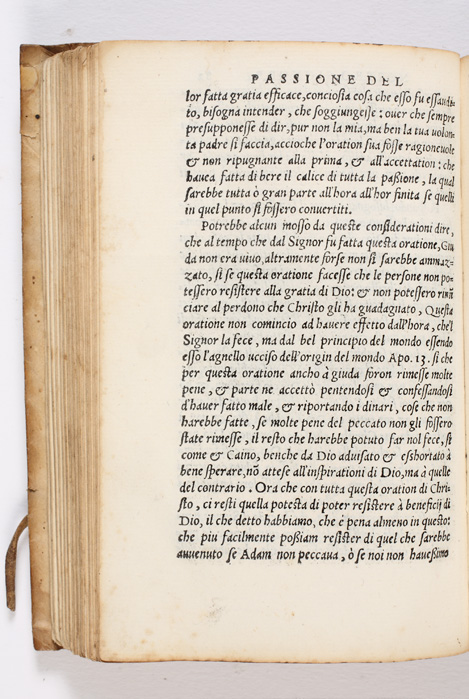 PASSIONE DEL
lor fatta gratia efficace, conciosia cosa che esso fu essaudi-
to, bisogna intender, che soggiungesse: ouer che sempre
presupponesse di dir, pur non la mia, ma ben la tua uolon
ta padre si faccia, accioche l'oration sua fosse ragioneuole
& non ripugnante alla prima, & all'accettation: che
hauea fatta di bere il calice di tutta la passione, la qual
sarebbe tutta ò gran parte all'hora all'hor finita se quelli
in quel punto si fossero conuertiti.
Potrebbe alcun mosso da queste considerationi dire,
che al tempo che dal Signor fu fatta questa oratione, Giu
da non era uiuo, altramente forse non si sarebbe ammaz-
zato, si se questa oratione facesse che le persone non po-
tessero resistere alla gratia di Dio: & non potessero rinũ
ciare al perdono che Christo gli ha guadagnato, Questa
oratione non comincio ad hauere effetto dall'hora, che'l
Signor la fece, ma dal bel principio del mondo essendo
esso l'agnello ucciso dell'origin del mondo Apo. 13. si che
per questa oratione ancho à giuda foron rimesse molte
pene, & parte ne accettò pentendosi & confessandosi
d'hauer fatto male, & riportando i dinari, cose che non
harebbe fatte, se molte pene del peccato non gli fossero
state rimesse, il resto che harebbe potuto far nol fece, si
come & Caino, benche da Dio aduisato & esshortato à
bene sperare, nõ attese all'inspirationi di Dio, ma à quelle
del contrario. Ora che con tutta questa oration di Chri-
sto, ci resti quella potesta di poter resistere à beneficij di
Dio, il che detto habbiamo, che è pena almeno in questo:
che piu facilmente possiam resister di quel che sarebbe
auuenuto se Adam non peccaua, ò se noi non hauessimo